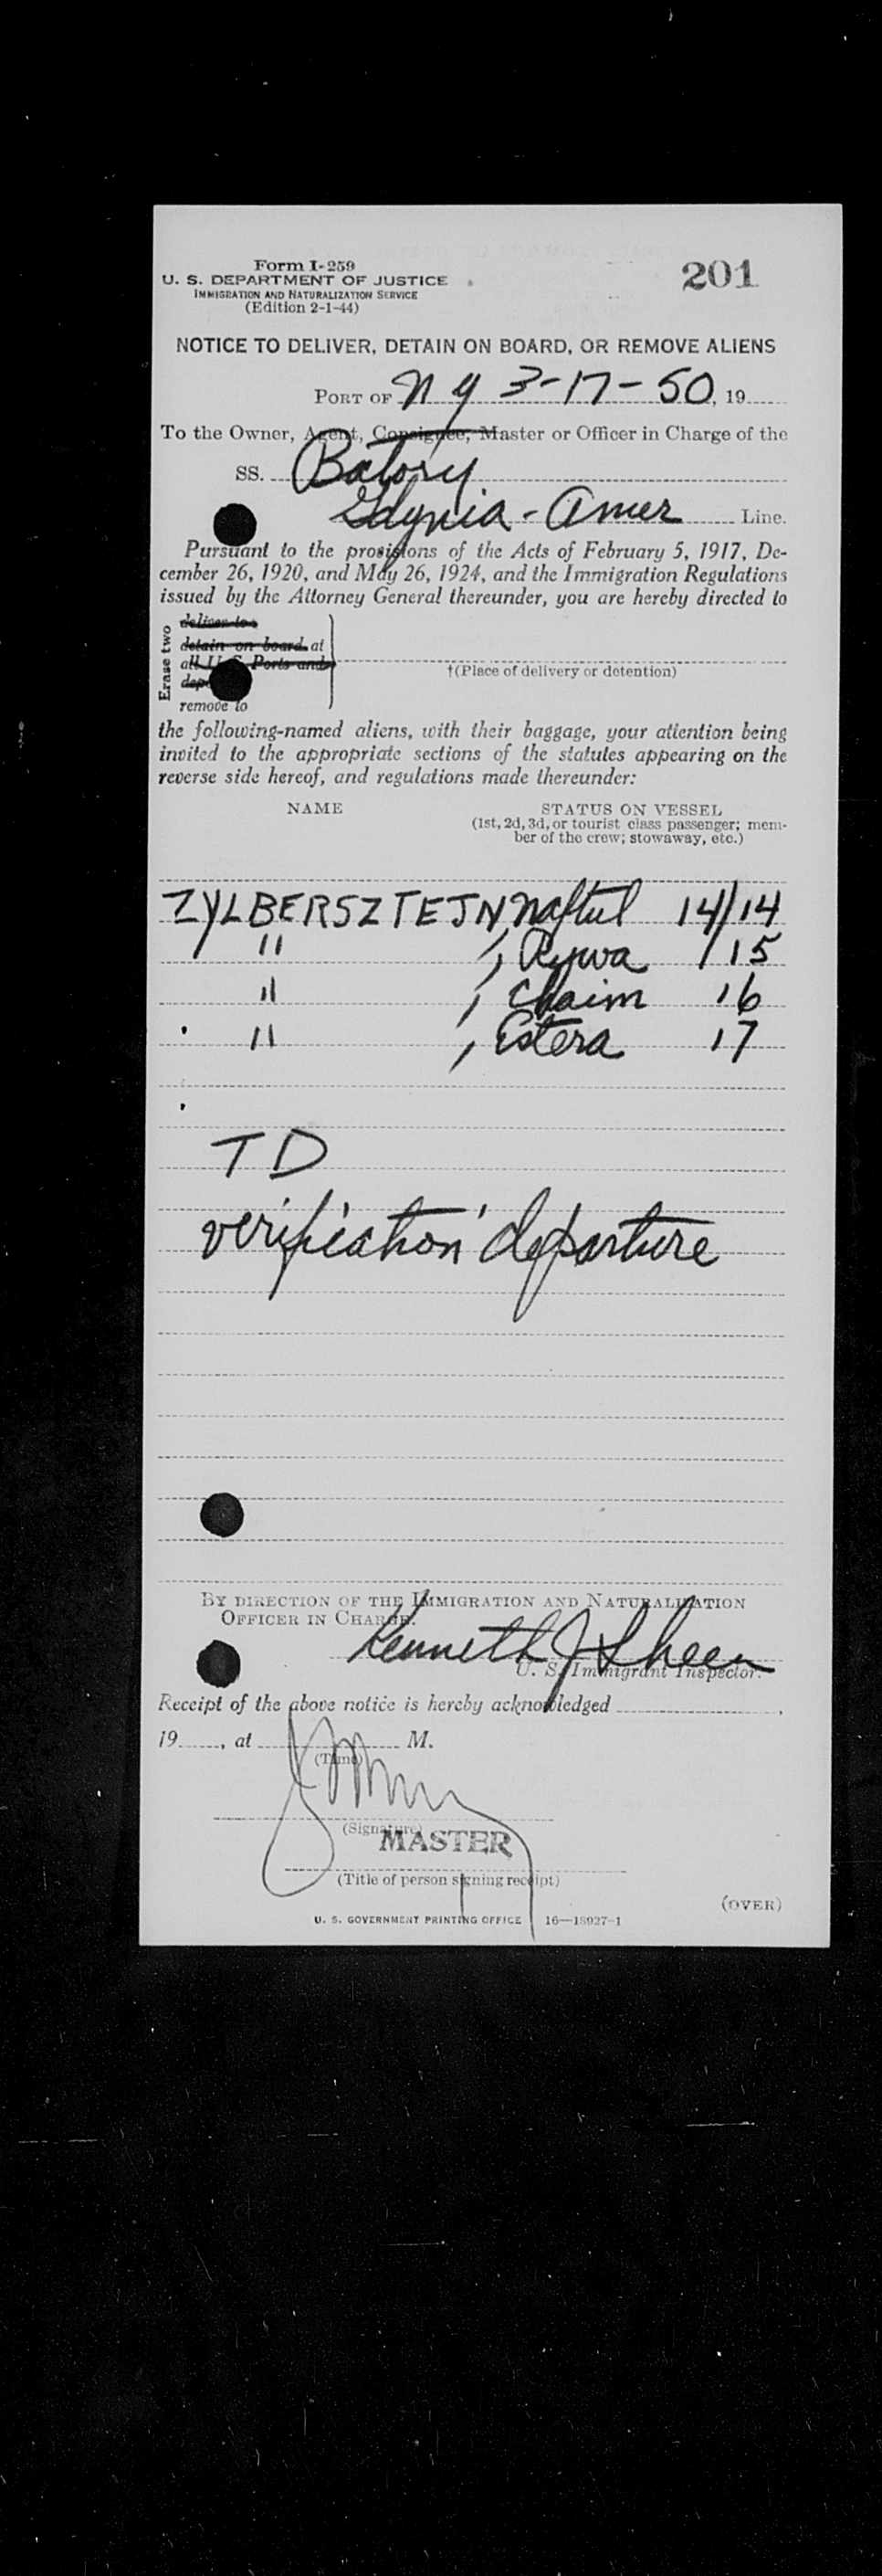 Form I-259
U. S. DEPARTMENT OF JUSTICE
IMMIGRATION AND NATURALIZATION SERVICE
(Edition 2-1-44)
201
NOTICE TO DELIVER, DETAIN ON BOARD, OR REMOVE ALIENS
PORT OF N Y 3-17-50, 19
To the Owner, Agent, Consignee, Master or Officer in Charge of the
SS. Batory
Gdynia - Amer Line.
Pursuant to the provisions of the Acts of February 5, 1917, De-
cember 26, 1920, and May 26, 1924, and the Immigration Regulations
issued by the Attorney General thereunder, you are hereby directed to
Erase two
deliver to
detain on board at
all U S Ports and
remove to
†(Place of delivery or detention)
the following-named aliens, with their baggage, your attention being
invited to the appropriate sections of the statutes appearing on the
reverse side hereof, and regulations made thereunder:
NAME STATUS ON VESSEL
(1st, 2d, 3d, or tourist class passenger; mem-
ber of the crew; stowaway, etc.)
ZYLBERSZTEJN Naftul 14/14
" , Rywa /15
" , Chaim 16
" , Estera 17
TD
verification departure
BY DIRECTION OF THE IMMIGRATION AND NATURALIZATION
OFFICER IN CHARGE.
Kenneth J Sheen
U. S. Immigrant Inspector.
Receipt of the above notice is hereby acknowledged ,
19 , at M.
(Time)
(Signature)
MASTER
(Title of person signing receipt)
(OVER)
U. S. GOVERNMENT PRINTING OFFICE 16—18927-1